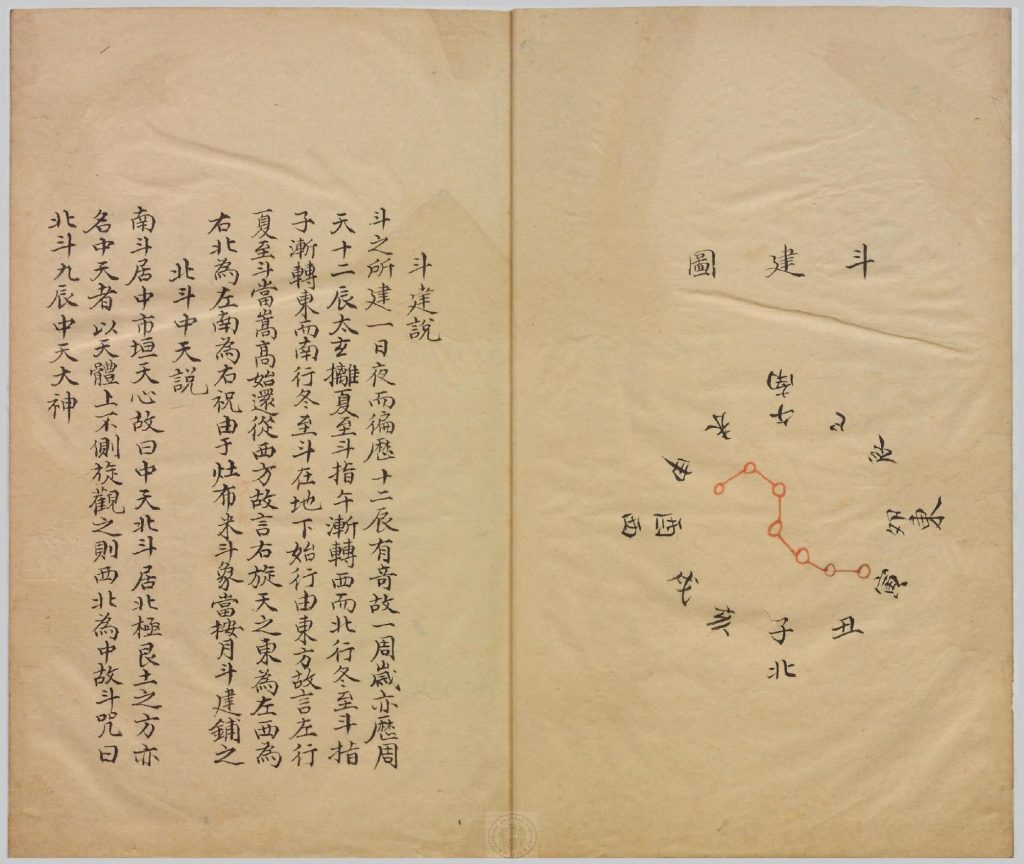 斗建圖
南
午
巳
辰
卯
東
寅
丑
子
北
亥
戌
酉
西
申
未
斗建說
斗之所建一日夜而徧歷十二辰有奇故一周歲亦歷周
天十二辰太玄攡夏至斗指午漸轉西而北行冬至斗指
子漸轉東而南行冬至斗在地下始行由東方故言左行
夏至斗當嵩高始還從西方故言右旋天之東為左西為
右北為左南為右祝由于灶布米斗象當按月斗建鋪之
北斗中天説
南斗居中市垣天心故曰中天北斗居北極艮土之方亦
名中天者以天體上不側旋觀之則西北為中故斗咒曰
北斗九辰中天大神